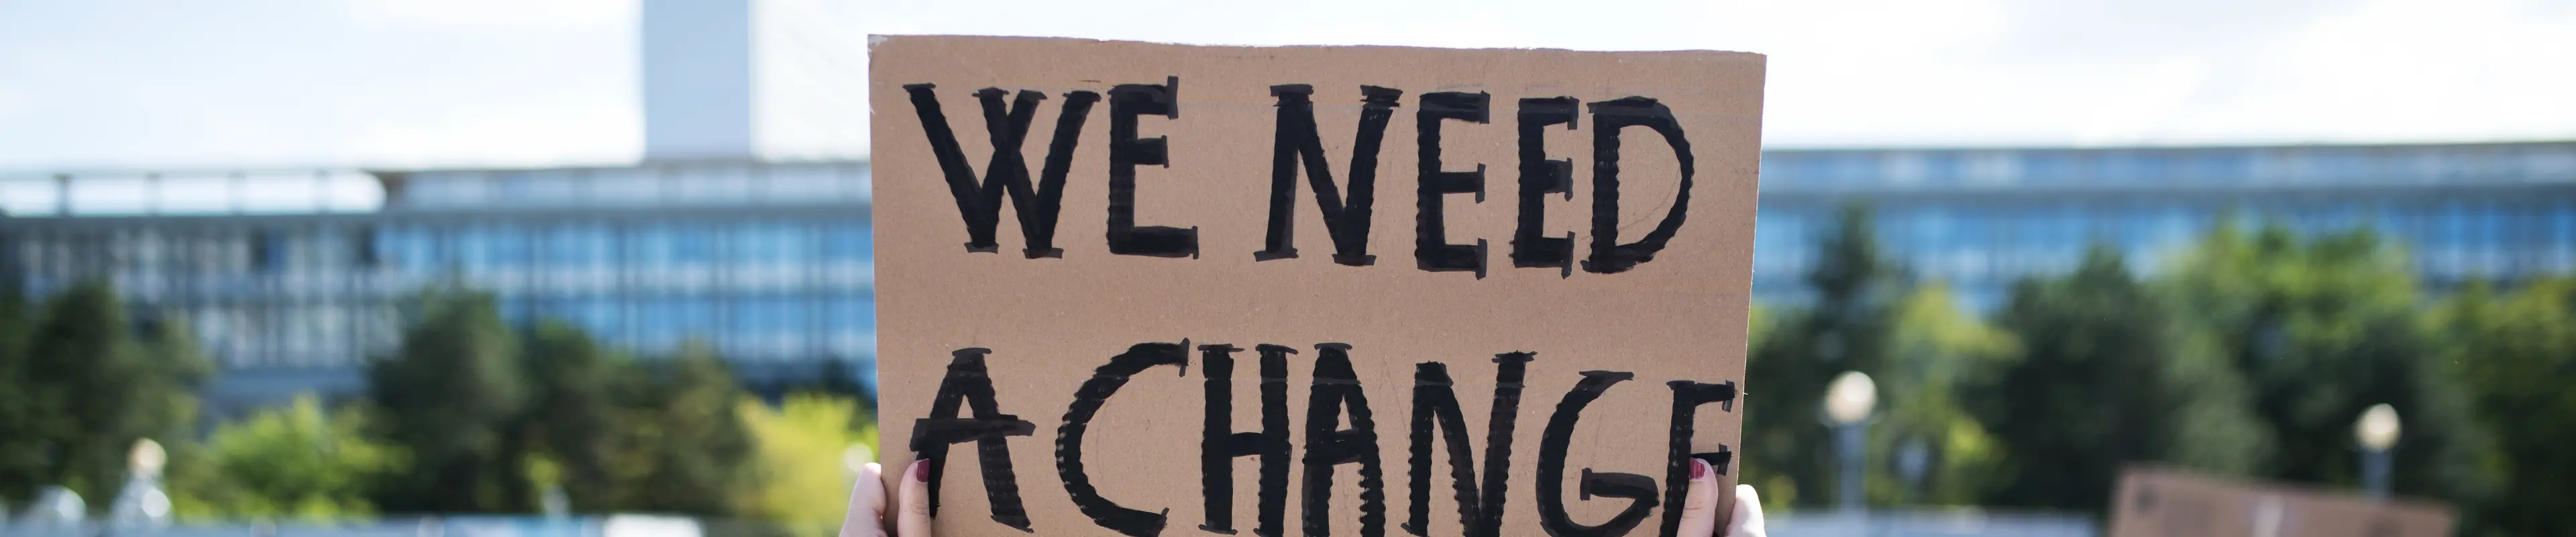 WE NEED
A CHANGE